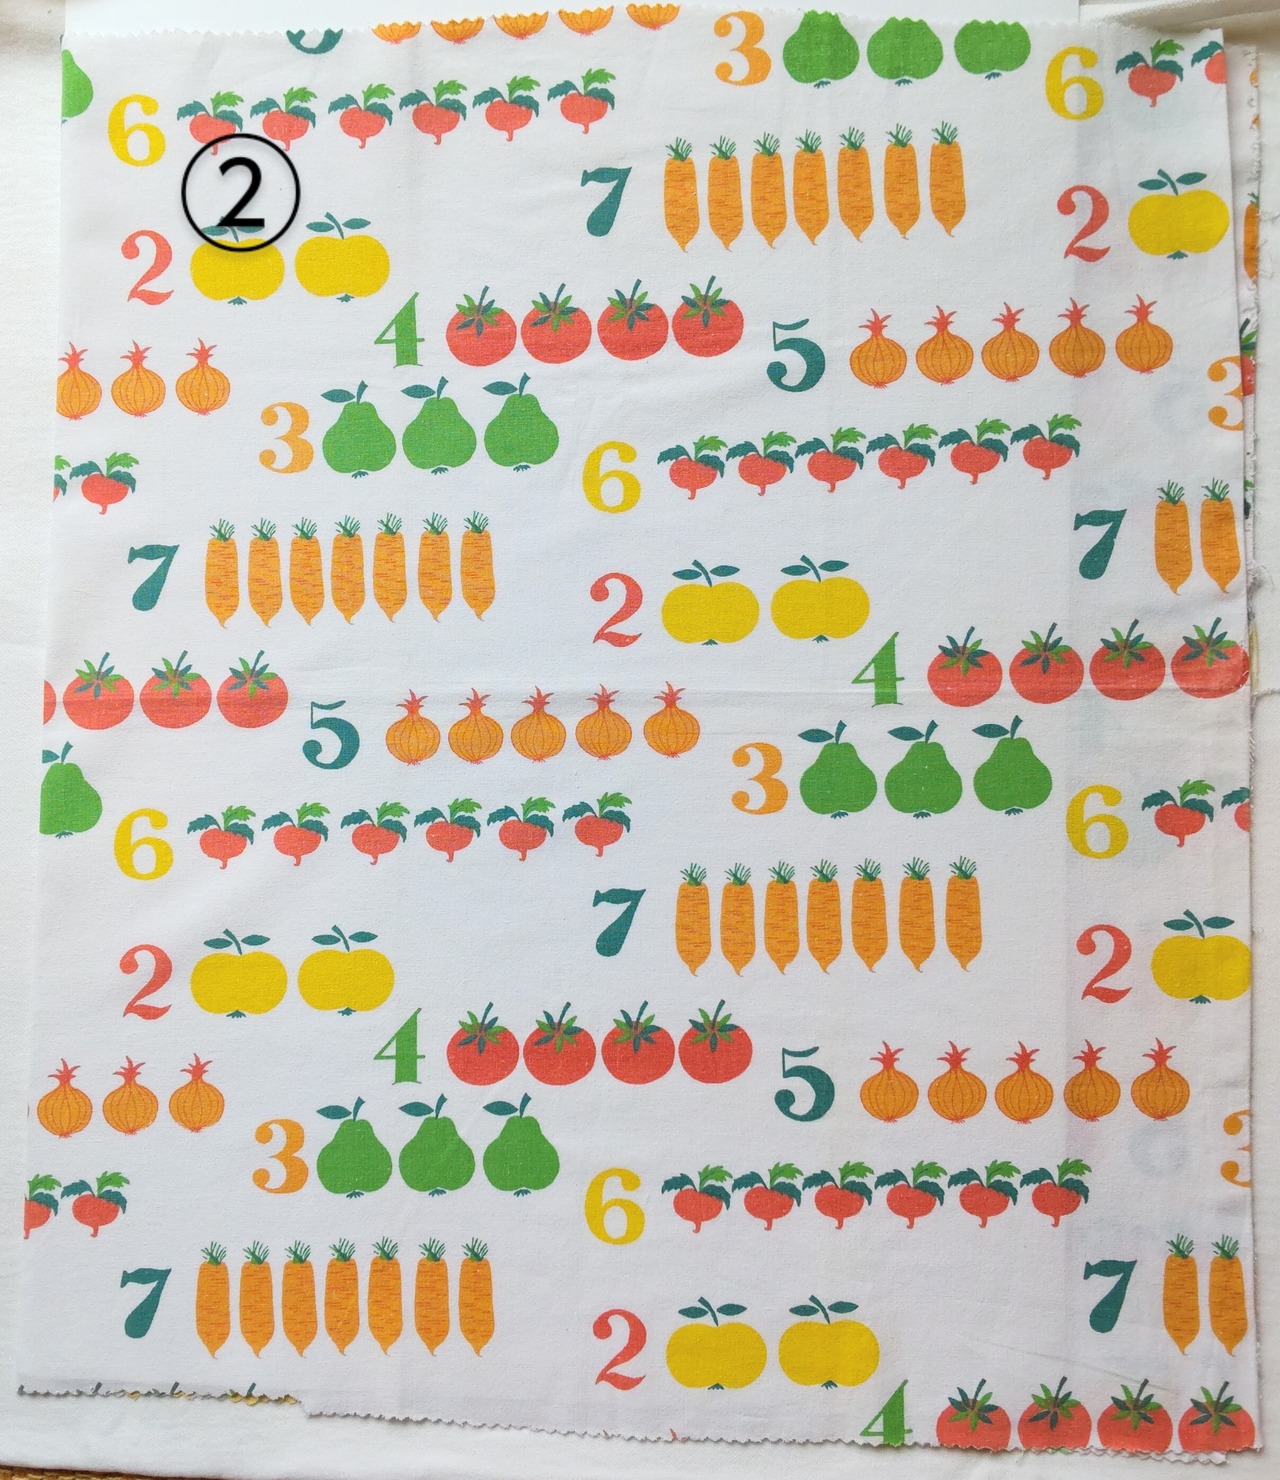 3
6
6
②
7
2
2
4
5
3
3
6
7
7
2
4
5
3
6
6
7
2
2
4
5
3
3
6
7
7
2
4